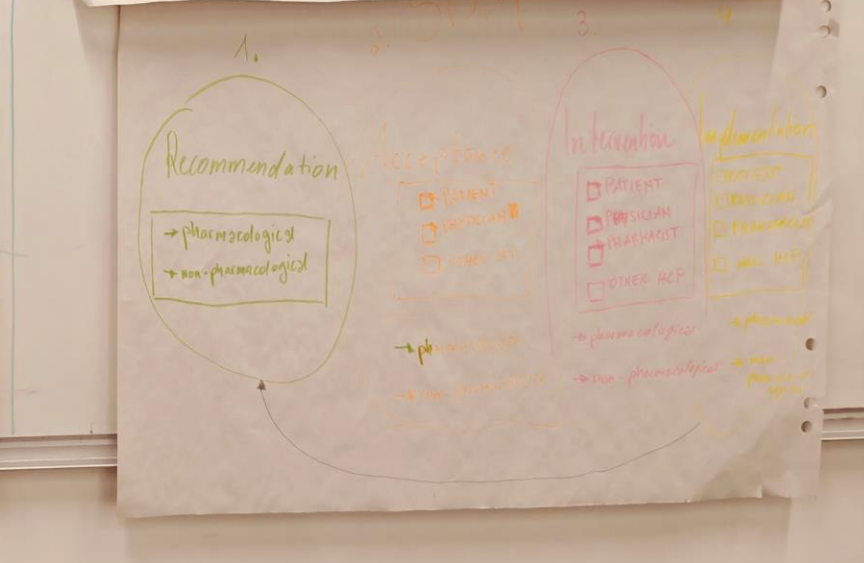 1.
Recommendation
→ pharmacological
→ non-pharmacological
2.
Acceptance
PATIENT
PHYSICIAN
OTHER HCP
→ pharmacological
→ non-pharmacological
3.
Intervention
PATIENT
PHYSICIAN
PHARMACIST
OTHER HCP
→ pharmacological
→ non-pharmacological
4.
Implementation
PATIENT
PHYSICIAN
PHARMACIST
OTHER HCP